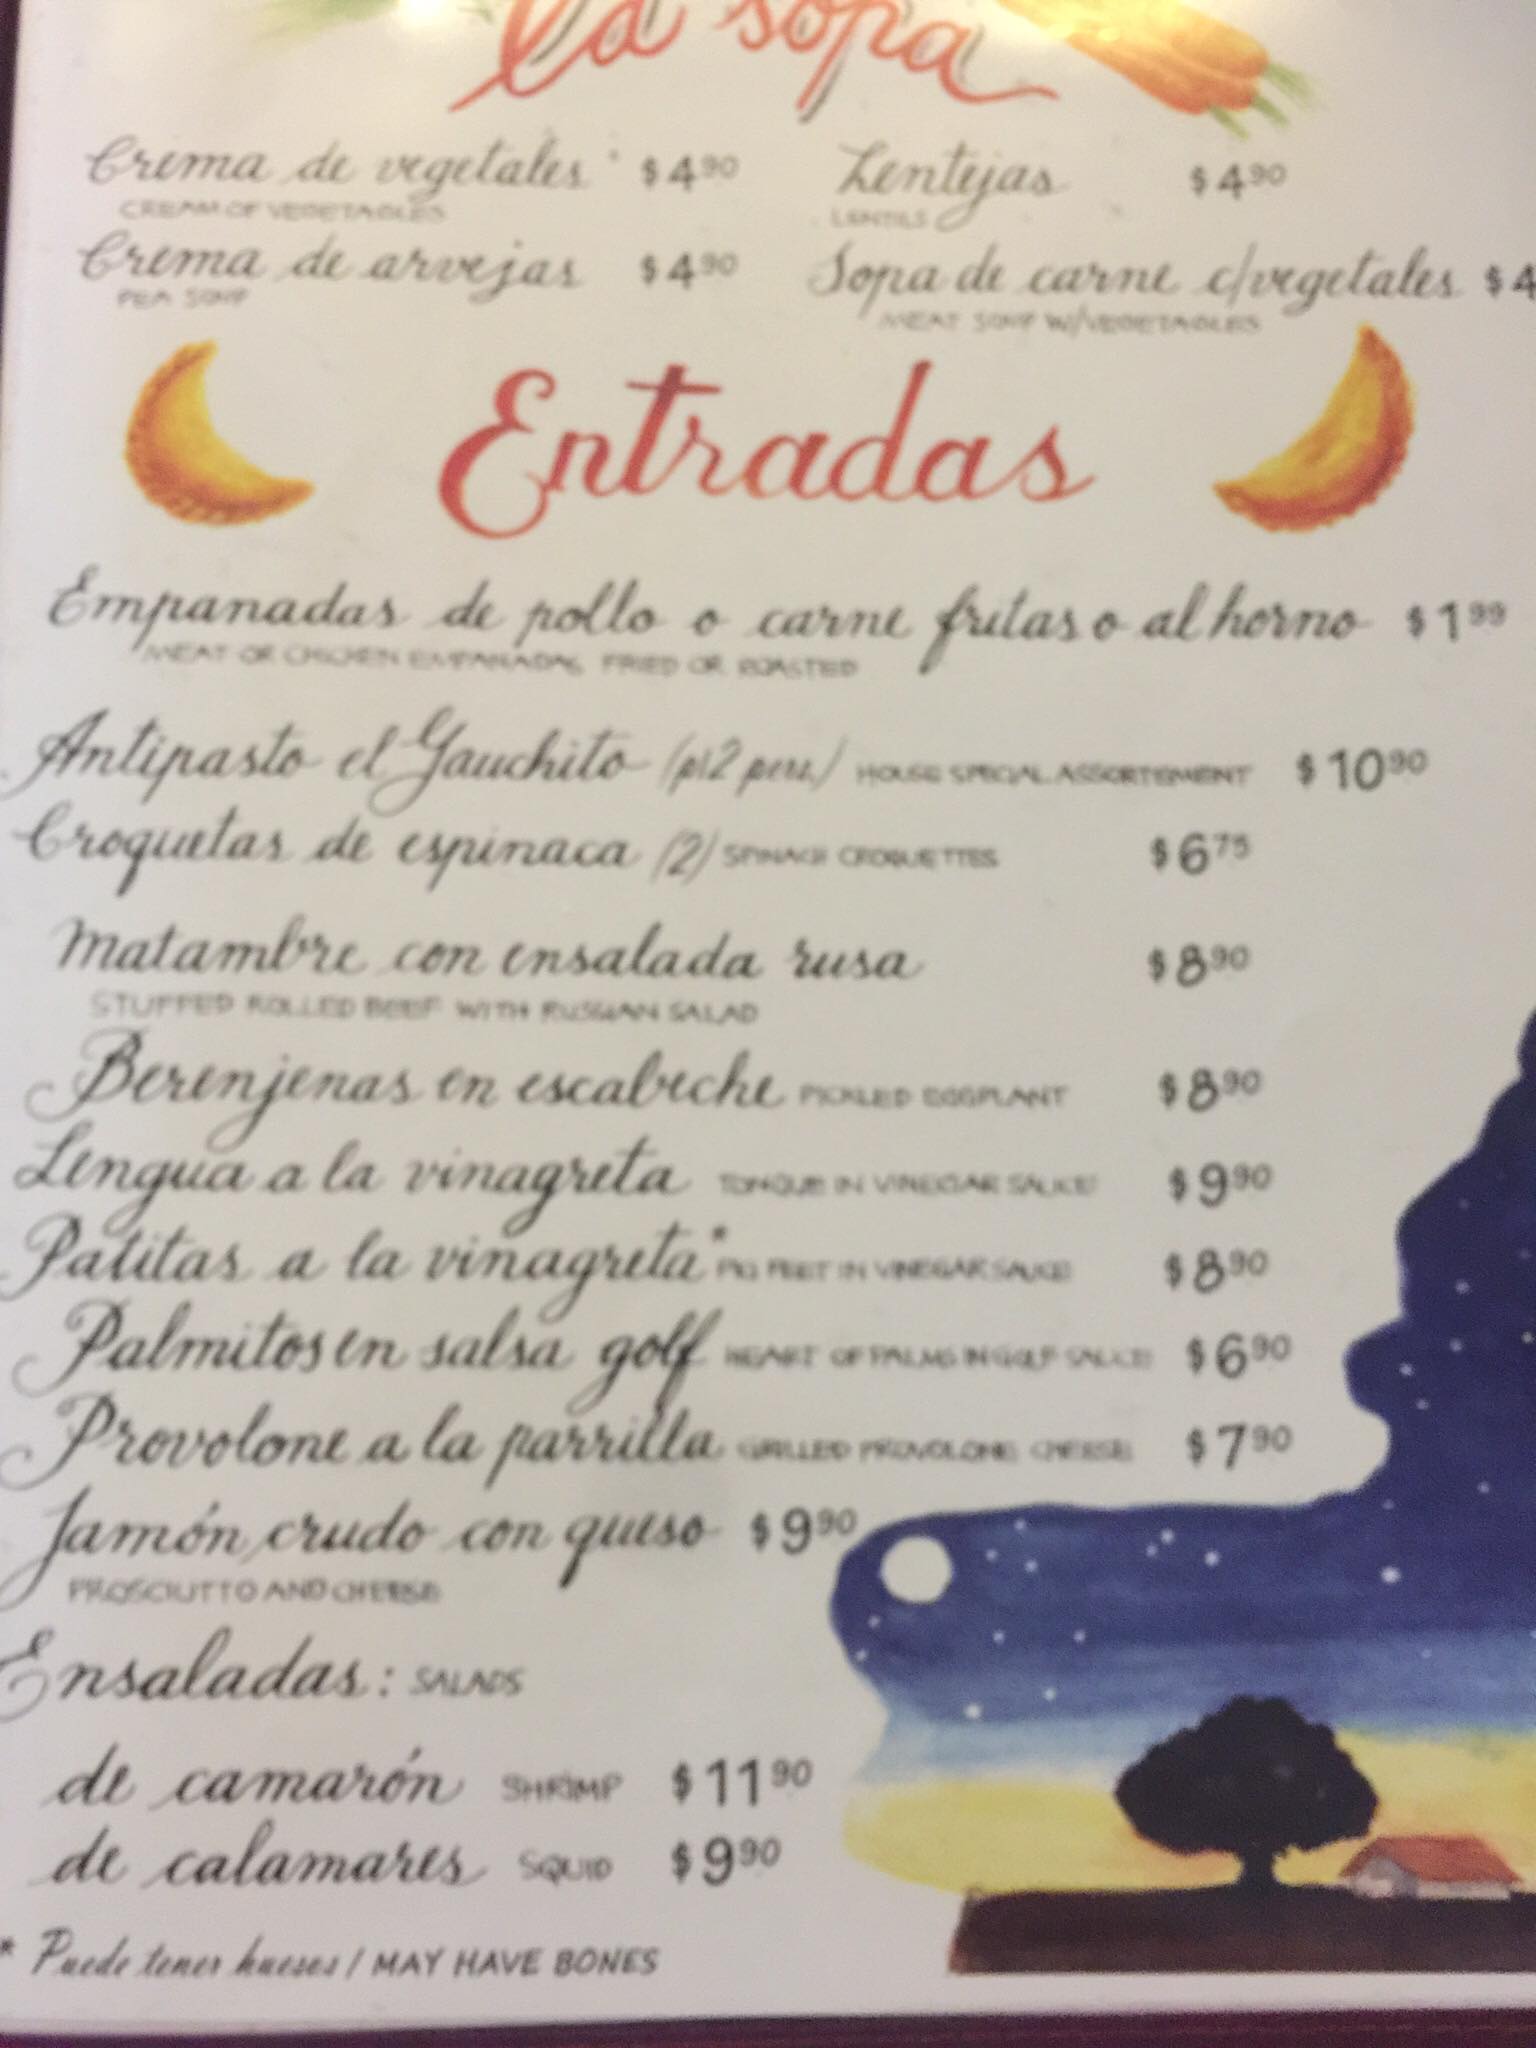 la sopa
Crema de vegetales $4.90 Lentejas $4.90
CREAM OF VEGETABLES LENTILS
Crema de arvejas $4.90 Sopa de carne c/vegetales $4
PEA SOUP MEAT SOUP W/VEGETABLES
Entradas
Empanadas de pollo o carne fritas o al horno $1.99
MEAT OR CHICKEN EMPANADAS FRIED OR ROASTED
Antipasto el Gauchito (p/2 pers.) HOUSE SPECIAL ASSORTEMENT $10.90
Croquetas de espinaca (2) SPINACH CROQUETTES $6.75
Matambre con ensalada rusa $8.90
STUFFED ROLLED BEEF WITH RUSSIAN SALAD
Berenjenas en escabeche PICKLED EGGPLANT $8.90
Lengua a la vinagreta TONGUE IN VINEGAR SAUCE $9.90
Patitas a la vinagreta* PIG FEET IN VINEGAR SAUCE $8.90
Palmitos en salsa golf HEART OF PALMS IN GOLF SAUCE $6.90
Provolone a la parrilla GRILLED PROVOLONE CHEESE $7.90
Jamón crudo con queso $9.90
PROSCIUTTO AND CHEESE
Ensaladas: SALADS
de camarón SHRIMP $11.90
de calamares SQUID $9.90
* Puede tener huesos / MAY HAVE BONES